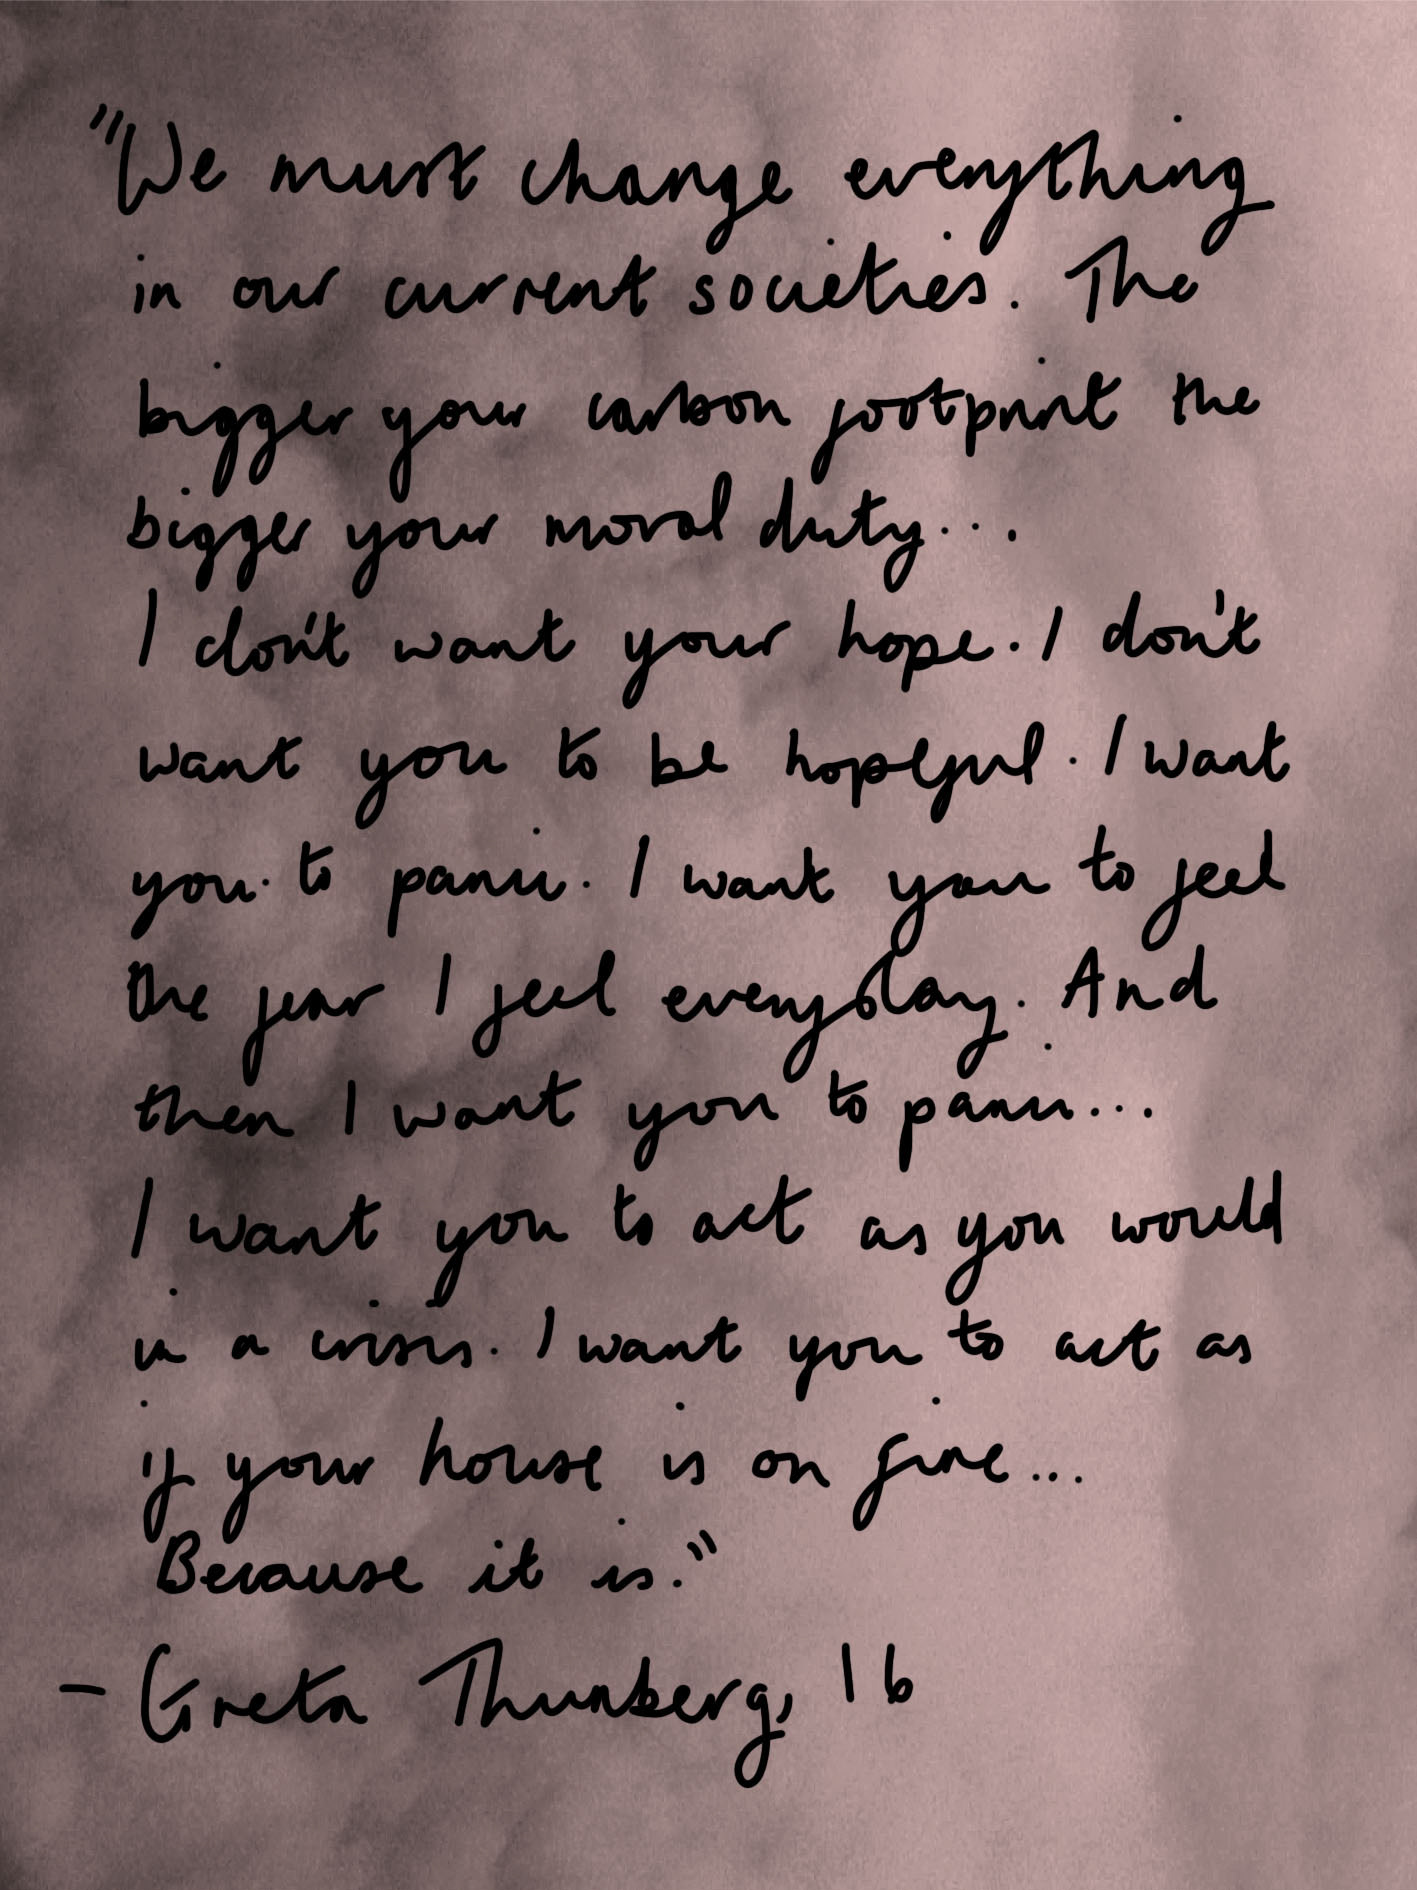 "We must change everything
in our current societies. The
bigger your carbon footprint the
bigger your moral duty...
I don't want your hope. I don't
want you to be hopeful. I want
you to panic. I want you to feel
the fear I feel everyday. And
then I want you to panic...
I want you to act as you would
in a crisis. I want you to act as
if your house is on fire...
Because it is."
- Greta Thunberg, 16